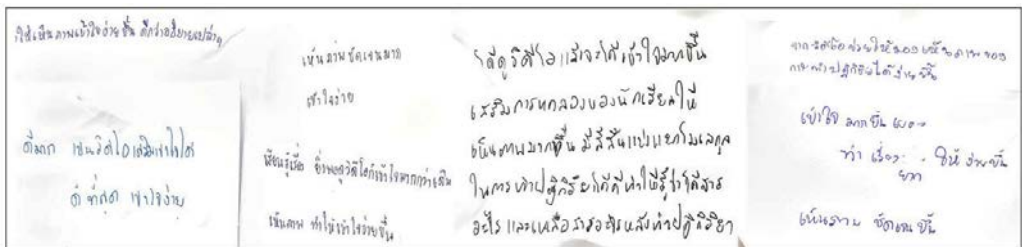 ใช้เห็นภาพเข้าใจง่ายขึ้น ดีกว่าอธิบายเปล่าๆ
ดีมาก เช่นวิดีโอเสริมเข้าใจได้
ดีที่สุด เข้าใจง่าย
เห็นภาพชัดเจนมาก
เข้าใจง่าย
เรียนรู้เรื่อง ยิ่งพอดูวิดีโอก็เข้าใจมากกว่าเดิม
เห็นภาพ ทำให้เข้าใจง่ายขึ้น
ได้ดูวิดีโอแล้วจะได้เข้าใจมากขึ้น
เสริมการทดลองของนักเรียนให้
เห็นภาพมากขึ้น มีสีสันแบ่งแยกโมเลกุล
ในการทำปฏิกิริยาได้ดีทำให้รู้ว่าได้สาร
อะไร และเหลือสารอะไรหลังทำปฏิกิริยา
ช่วยให้มองเห็นภาพของ
การทำปฏิกิริยาได้ง่ายขึ้น
เข้าใจ มากขึ้น เยอะ
ทำ เรื่อง ยาก ให้ ง่ายขึ้น
เห็นภาพ ชัดเจนขึ้น